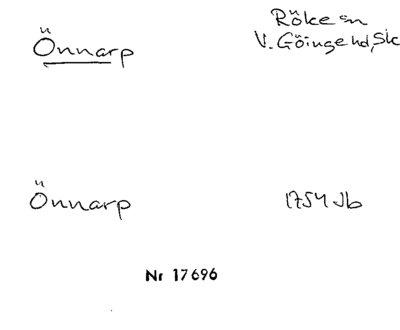 Önnarp
Röke sn
V. Göinge hd, Sk
Önnarp
1754 Jb
Nr 17696